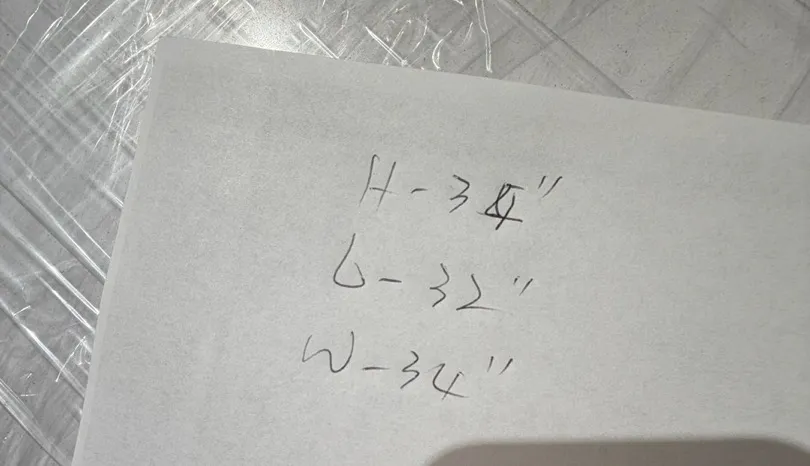 H - 34"
L - 32"
W - 34"